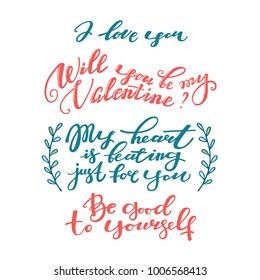 I love you
Will you be my
Valentine?
My heart
is beating
just for you
Be good
to yourself
shutterstock.com · 1006568413